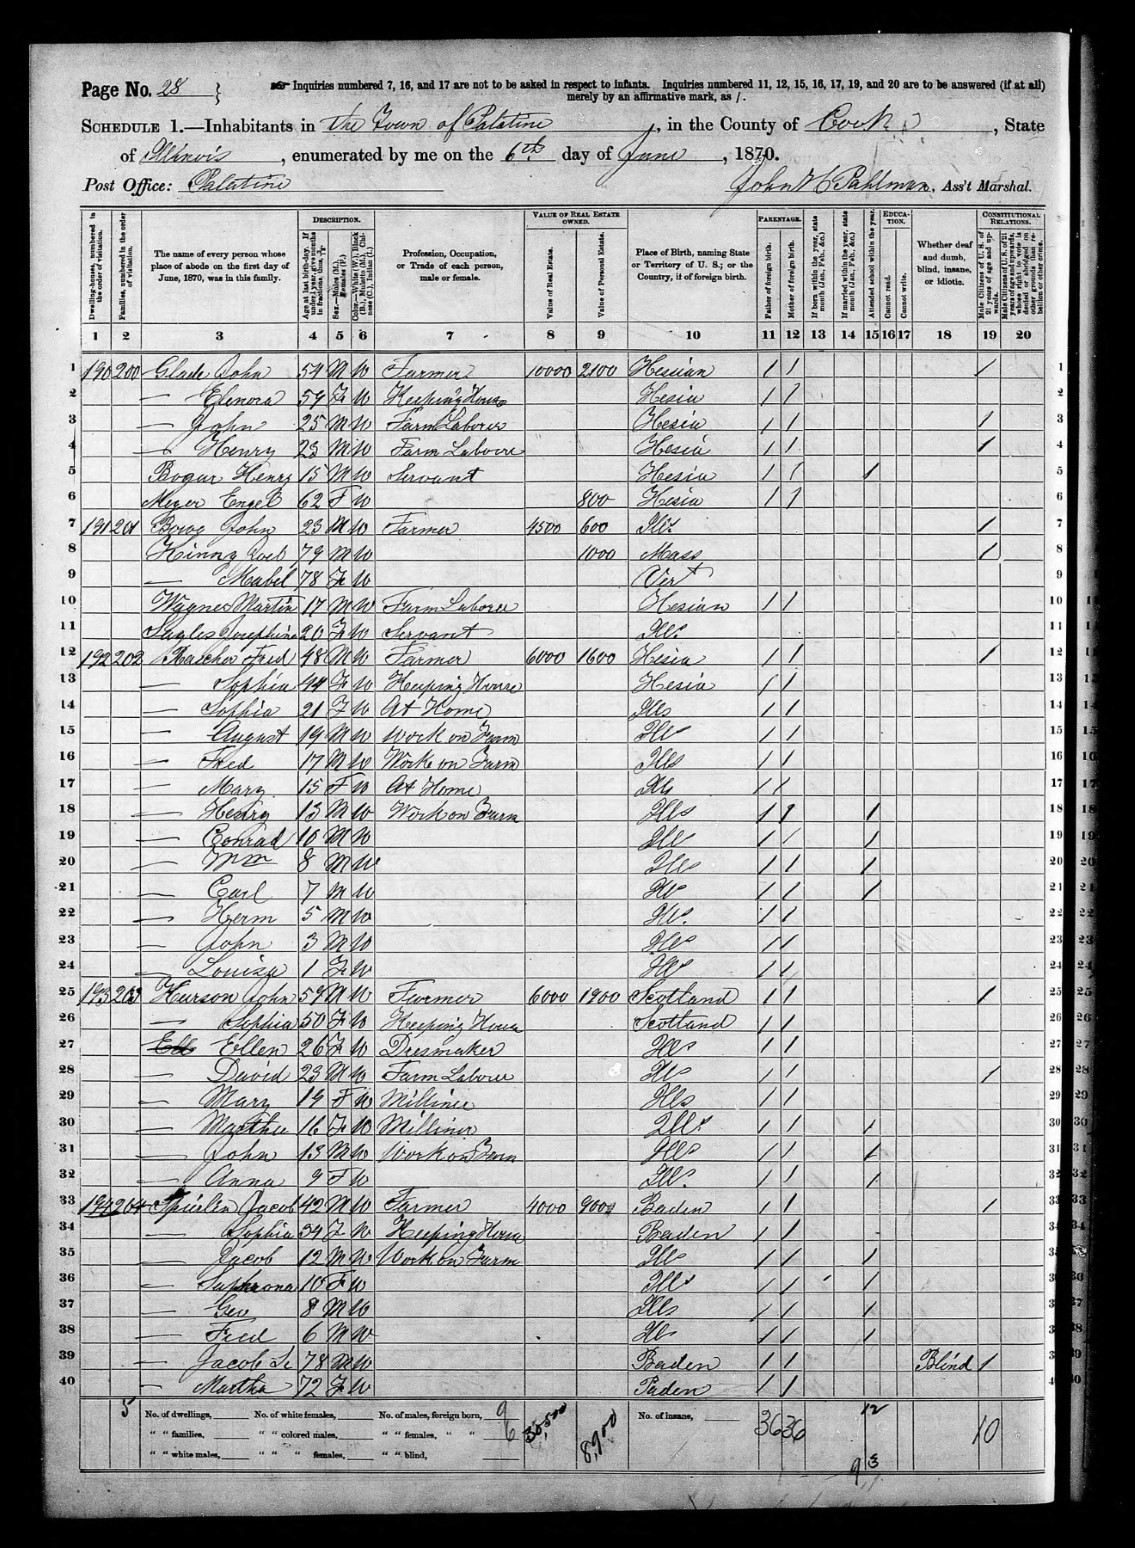 Page No. 28
Inquiries numbered 7, 16, and 17 are not to be asked in respect to infants. Inquiries numbered 11, 12, 15, 16, 17, 19, and 20 are to be answered (if at all)
merely by an affirmative mark, as /.
SCHEDULE 1.—Inhabitants in the Town of Palatine, in the County of Cook, State
of Illinois, enumerated by me on the 6th day of June, 1870.
Post Office: Palatine John H Pahlman, Ass't Marshal.
DESCRIPTION. VALUE OF REAL ESTATE OWNED. PARENTAGE. EDUCATION. CONSTITUTIONAL RELATIONS.
Dwelling-houses, numbered in the order of visitation. Families, numbered in the order of visitation. The name of every person whose place of abode on the first day of June, 1870, was in this family. Profession, Occupation, or Trade of each person, male or female. Value of Real Estate. Value of Personal Estate. Place of Birth, naming State or Territory of U. S.; or the Country, if of foreign birth. Father of foreign birth. Mother of foreign birth. Attended school within the year. Cannot read. Cannot write. Whether deaf and dumb, blind, insane, or idiotic.
1 2 3 4 5 6 7 8 9 10 11 12 13 14 15 16 17 18 19 20
1 190 200 Glade John 54 M W Farmer 10000 2100 Hesian / / / 1
2 — Elenora 59 F W Keeping House Hesia / / 2
3 — John 25 M W Farm Laborer Hesia / / / 3
4 — Henry 23 M W Farm Laborer Hesia / / / 4
5 Henry 15 M W Servant Hesia / / / 5
6 Meyer Engel 62 F W 800 Hesia / / 6
7 191 201 John 23 M W Farmer 4500 600 Ills / 7
8 79 M W 1000 Mass / 8
9 — Mabel 78 F W Vert 9
10 Wagner Martin 17 M W Farm Laborer Hesian / / 10
11 Josephine 20 F W Servant Ills 11
12 192 202 Rascher Fred 48 M W Farmer 6000 1600 Hesia / / / 12
13 — Sophia 44 F W Keeping House Hesia / / 13
14 — Sophia 21 F W At Home Ills / / 14
15 — August 19 M W Work on Farm Ills / / 15
16 — Fred 17 M W Work on Farm Ills / / 16
17 — Mary 15 F W At Home Ills / / 17
18 — Henry 13 M W Work on Farm Ills / / / 18
19 — Conrad 10 M W Ills / / / 19
20 — Wm 8 M W Ills / / / 20
21 — Carl 7 M W Ills / / / 21
22 — Herm 5 M W Ills / / 22
23 — John 3 M W Ills / / 23
24 — Louisa 1 F W Ills / / 24
25 193 203 John 59 M W Farmer 6000 1900 Scotland / / / 25
26 — Sophia 50 F W Keeping House Scotland / / 26
27 Ellen 26 F W Dresmaker Ills / / 27
28 — David 23 M W Farm Laborer Ills / / / 28
29 — Mary 19 F W Milliner Ills / / 29
30 — Martha 16 F W Milliner Ills / / / 30
31 — John 13 M W Work on Farm Ills / / / 31
32 — Anna 9 F W Ills / / / 32
33 194 204 Jacob 42 M W Farmer 4000 900 Baden / / / 33
34 — Sophia 34 F W Keeping House Baden / / 34
35 — Jacob 12 M W Work on Farm Ills / / / 35
36 — 10 F W Ills / / / 36
37 — Geo 8 M W Ills / / / 37
38 — Fred 6 M W Ills / / / 38
39 — Jacob Se 78 M W Baden / / Blind / 39
40 — Martha 72 F W Baden / / 40
5 No. of dwellings, No. of white females, No. of males, foreign born, 9 30,500 8,900 No. of insane, 36 36 12 10
" " families, " " colored males, " " females, " " 6
" " white males, " " " females, " " blind,
9 3